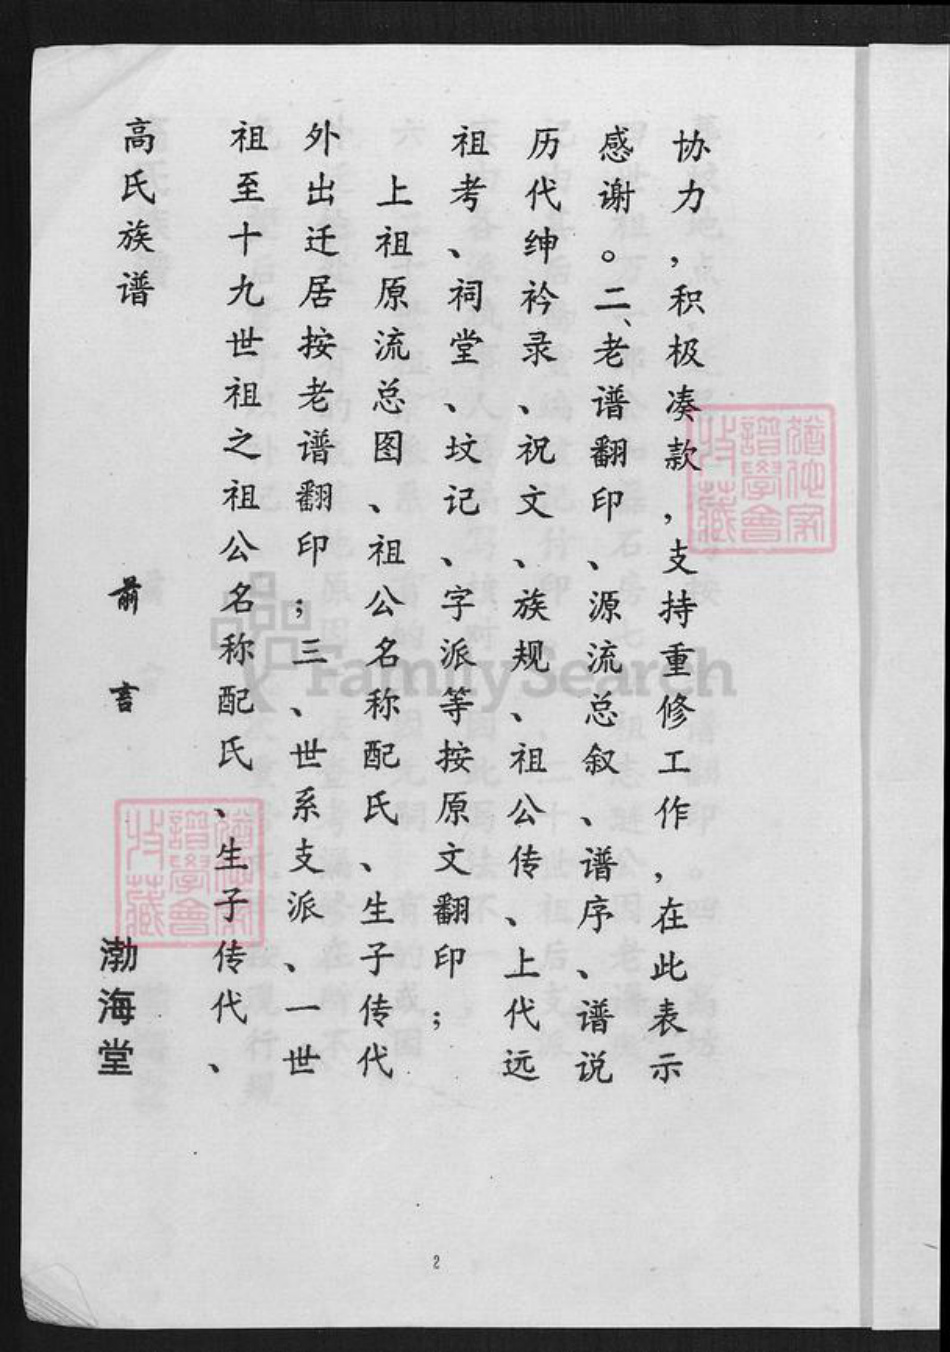 协力，积极凑款，支持重修工作，在此表示
感谢。二、老谱翻印、源流总叙、谱序、谱说
历代绅衿录、祝文、族规、祖公传、上代远
祖考、祠堂、坟记、字派等按原文翻印；
上祖原流总图、祖公名称配氏、生子传代
外出迁居按老谱翻印；三、世系支派、一世
祖至十九世祖之祖公名称配氏、生子传代、
高氏族谱
前言
渤海堂
2
FamilySearch